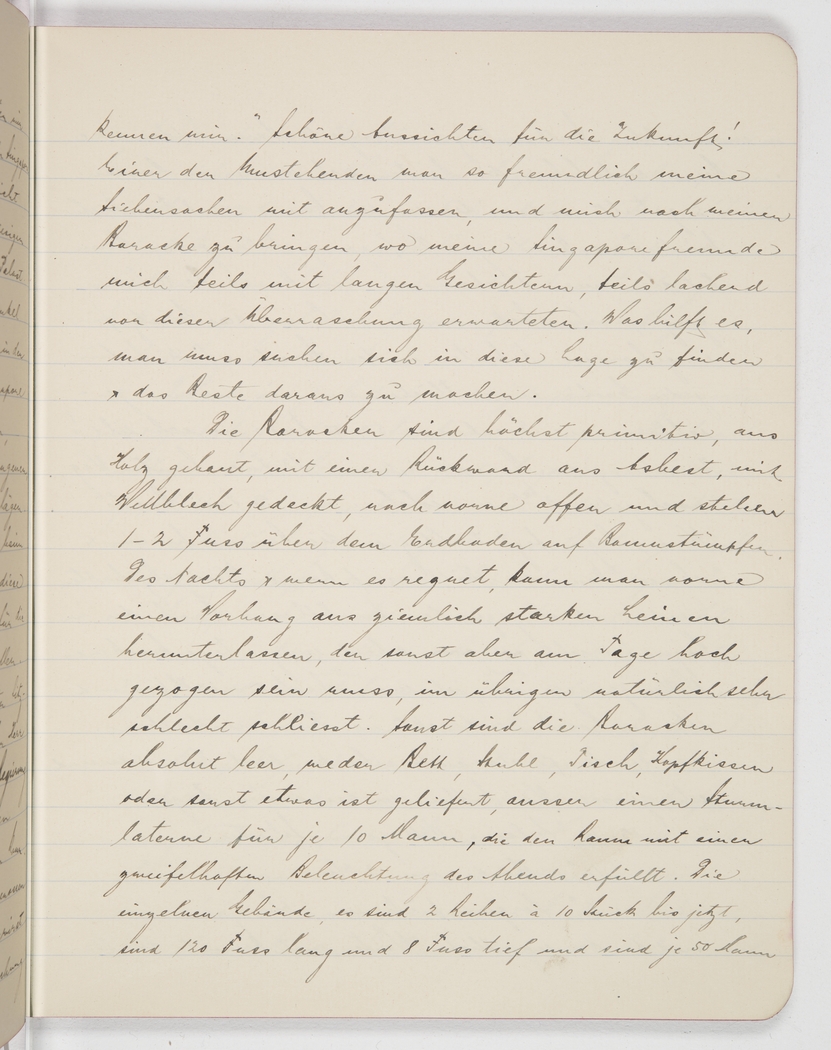 kennen wir." Schöne Aussichten für die Zukunft!
Einer der Umstehenden war so freundlich meine
Siebensachen mit anzufassen, und mich nach meiner
Baracke zu bringen, wo meine Singaporefreunde
mich teils mit langen Gesichtern, teils lachend
von dieser Überraschung erwarteten. Was hilft es,
man muss suchen sich in diese Lage zu finden
& das Beste daraus zu machen.
Die Baracken sind höchst primitiv, aus
Holz gebaut, mit einer Rückwand aus Asbest, mit
Wellblech gedeckt, nach vorne offen und stehen
1-2 Fuss über dem Erdboden auf Baumstümpfen.
Des Nachts & wenn es regnet, kann man vorne
einen Vorhang aus ziemlich starken Leinen
herunterlassen, der sonst aber am Tage hoch
gezogen sein muss, im übrigen natürlich sehr
schlecht schliesst. Sonst sind die Baracken
absolut leer, weder Bett, Stuhl, Tisch, Kopfkissen
oder sonst etwas ist geliefert, ausser einer Sturm-
laterne für je 10 Mann, die den Raum mit einer
zweifelhaften Beleuchtung des Abends erfüllt. Die
einzelnen Gebäude, es sind 2 Reihen à 10 Stück bis jetzt,
sind 120 Fuss lang und 8 Fuss tief und sind je 50 Mann